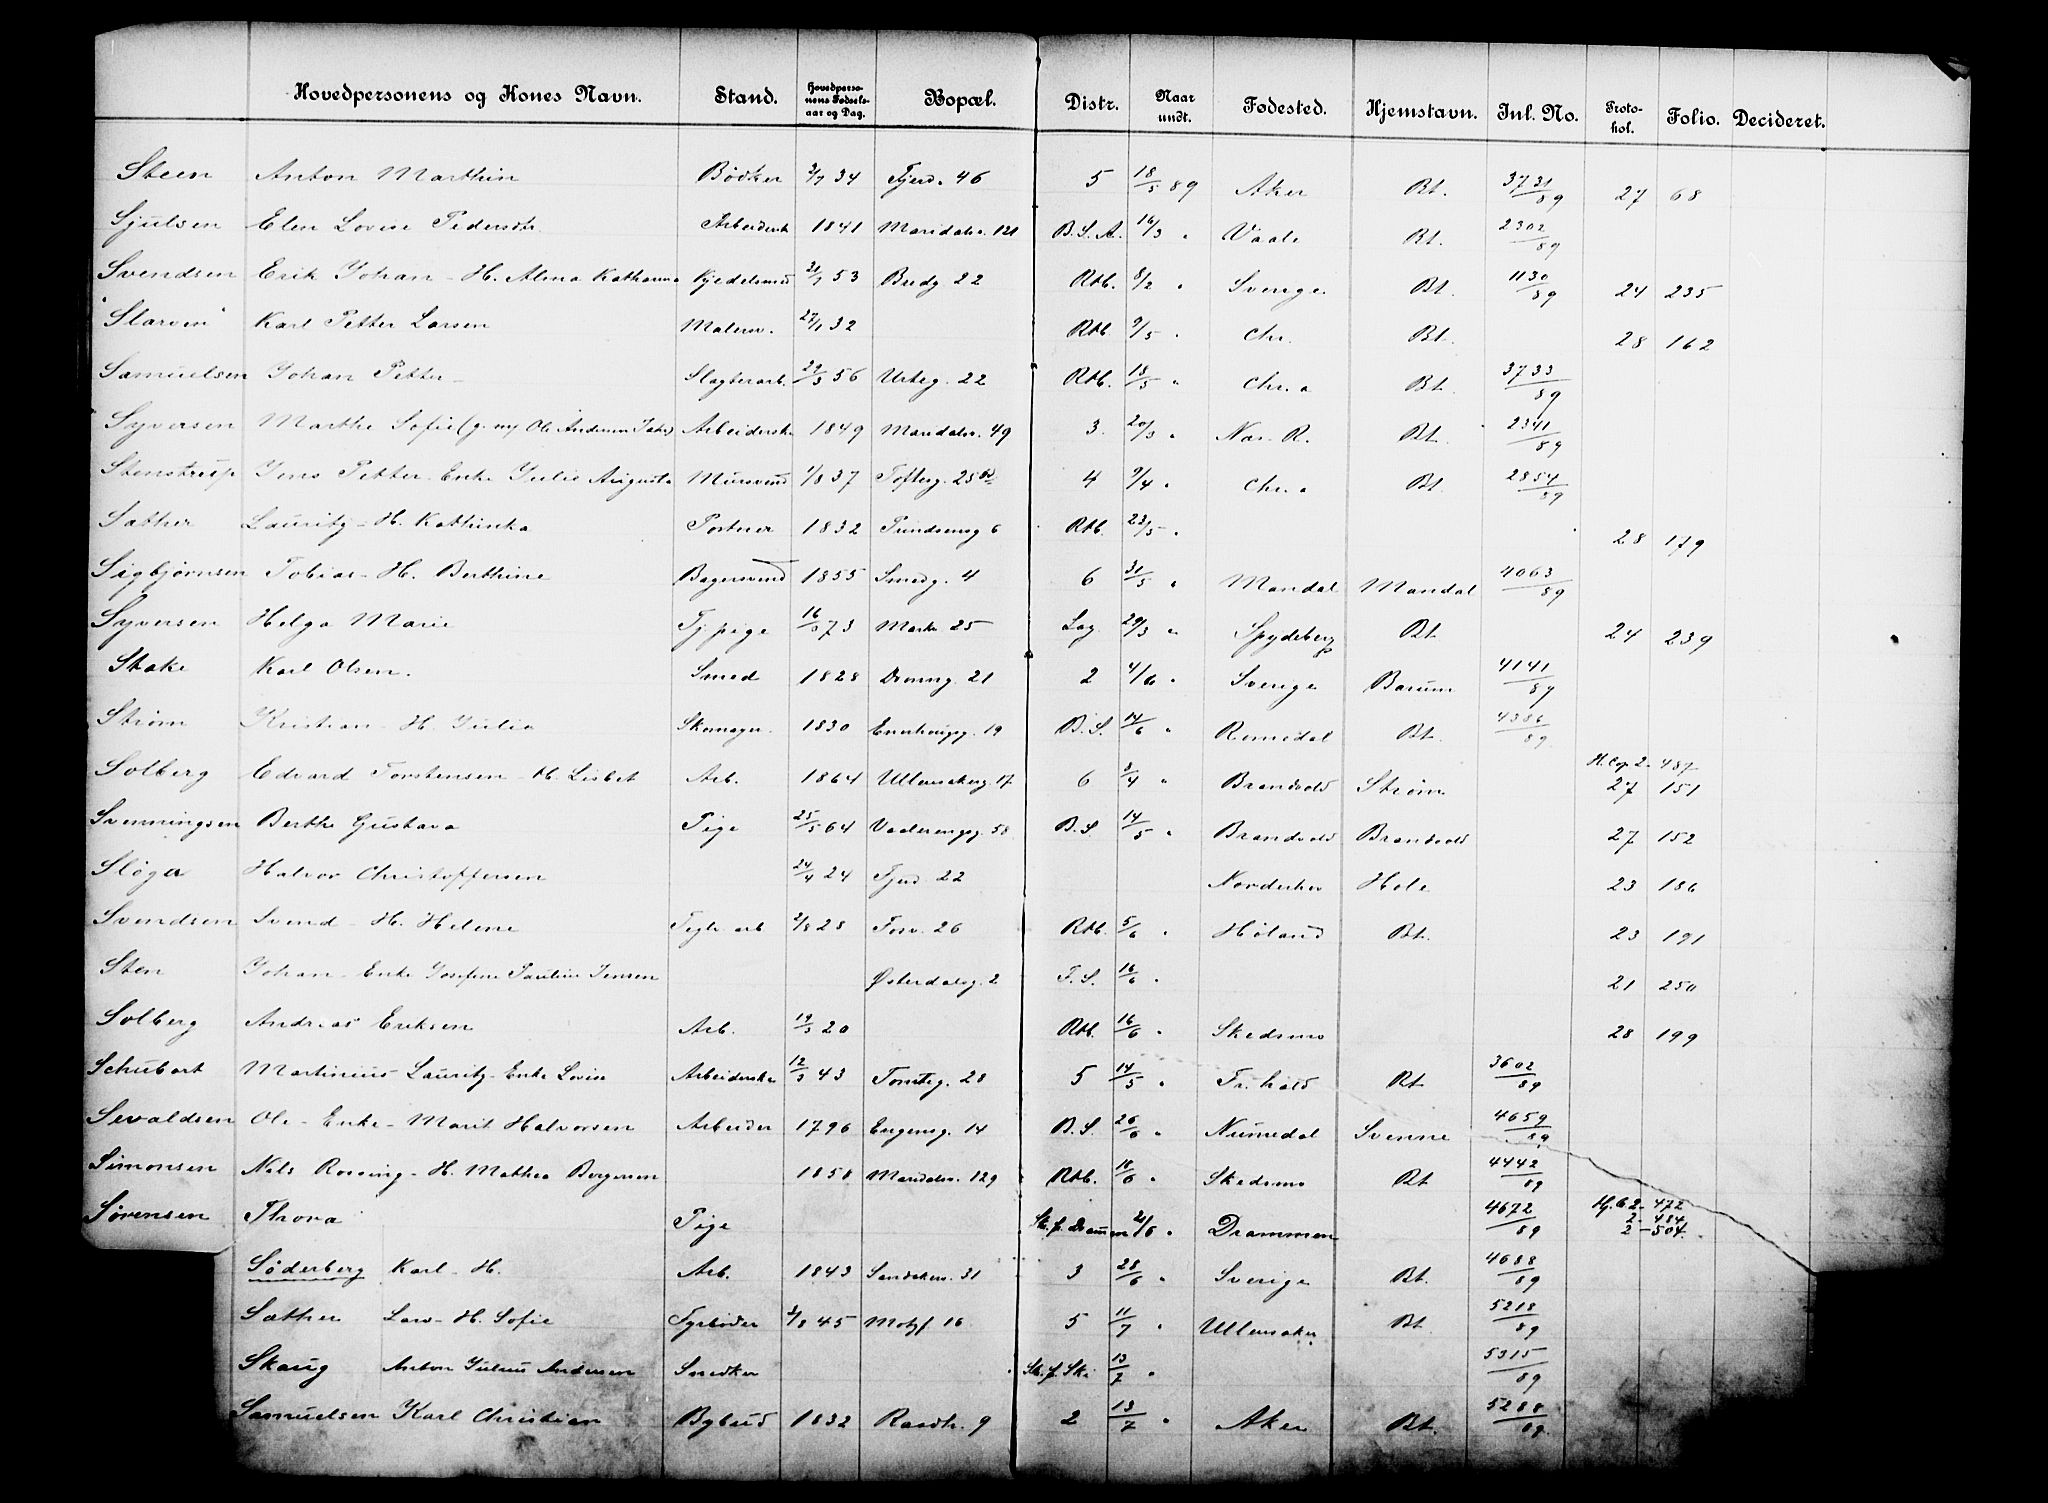 Hovedpersonens og Kones Navn. Stand. Hovedpersonens Fødselsaar og Dag. Bopæl. Distr. Naar undt. Fødested. Hjemstavn. Inl. No. Protokol. Folio. Decideret.
Steen Anton Marthin Bødker 2/7 34 Fjerd. 46 5 18/5 89 Aker Bt. 3731/89 27 68
Sjulsen Elen Lovise Pedersdtr Arbeidersk 1841 Maridalsv. 121 B.S.A. 16/3 " Vaale Bt. 2302/89
Svendsen Erik Johan - H. Alma Katharina Kjedelsmed 21/7 53 Bredg 22 Rtb. 8/2 " Sverige Bt. 1130/89 24 235
"Slarven" Karl Petter Larsen Malersv. 27/1 32 Rtb. 9/5 " Chr. Bt. 28 162
Samuelsen Johan Petter Slagterarb. 29/3 56 Urteg. 22 Rtb. 18/5 " Chr.a Bt. 3733/89
Syversen Marthe Sofie (g. m/ Ole Andersen) Arbeiderske 1849 Maridalsv. 49 3 20/3 " Nas. R. Bt. 2341/89
Stenstrup Jens Petter - Enke Julie Augusta Mursvend 1/8 37 Toftesg. 25 4 9/4 " Chr.a Bt. 2854/89
Sæther Lauritz - H. Kathinka Portner 1832 6 Rtb. 23/5 " 28 179
Sigbjørnsen Tobias - H. Berthine Bagersvend 1855 Smedg. 4 6 31/5 " Mandal Mandal 4063/89
Syversen Helga Marie Tj.pige 16/3 73 Markv. 25 Lag 29/3 " Spydeberg Bt. 24 239
Stake Karl Olsen. Smed 1828 Dronng. 21 2 4/6 " Sverige Bærum 4141/89
Strøm Kristian - H. Julia Skomager. 1830 Enerhougg. 19 B.S. 14/6 " Romedal Bt. 4386/89
Solberg Edvard Torstensen - H. Lisbet Arb. 1864 Ullensakerg. 17 6 3/4 " Brandvold Strøm H. Cop 2 - 487 27 151
Svenningsen Berthe Gustava Pige 25/5 64 Vaalerengg. 58 B.S. 14/5 " Brandvold Brandvold 27 152
Sløger Halvor Christoffersen 24/4 24 Fjerd. 22 Norderhov Hole 23 186
Svendsen Svend - H. Helene Teglv. arb 2/8 28 Fossv. 26 Rtb. 5/6 " Høland Bt. 23 191
Sten Johan - Enke Josefine Pauline Jensen Østerdalsg. 2 F.S. 16/6 " 21 250
Solberg Andreas Eriksen Arb. 19/3 20 Rtb. 16/6 " Skedsmo 28 199
Schubart Martinius Lauritz - Enke Lovise Arbeiderske 12/3 43 Tomteg. 28 5 14/5 " Fr.hald Bt 3602/89
Sevaldsen Ole - Enke - Marit Halvorsen Arbeider 1796 Engensg. 14 B.S. 26/6 " Numedal Svenne 4659/89
Simonsen Nils Rossing - H. Mathea Bergersen 1858 Maridalsv. 129 Rtb. 18/6 " Skedsmo Bt 4442/89
Sørensen Thora Pige Sk. f. Drammen 21/6 " Drammen 4672/89 Hj. C 2 - 472
2 - 484
2 - 504.
Söderberg Karl - H. Arb. 1843 Sandakerv. 31 3 28/6 " Sverige Bt. 4688/89
Sæther Lars - H. Sofie Fyrbøder 2/8 45 Motzf. 16 5 11/7 " Ullensaker Bt. 5218/89
Skaug Anton Julius Andersen Snedker Sk. f. Ski 13/7 " 5315/89
Samuelsen Karl Christian Bybud 1832 Raadh. 9 2 13/7 " Aker Bt. 5288/89